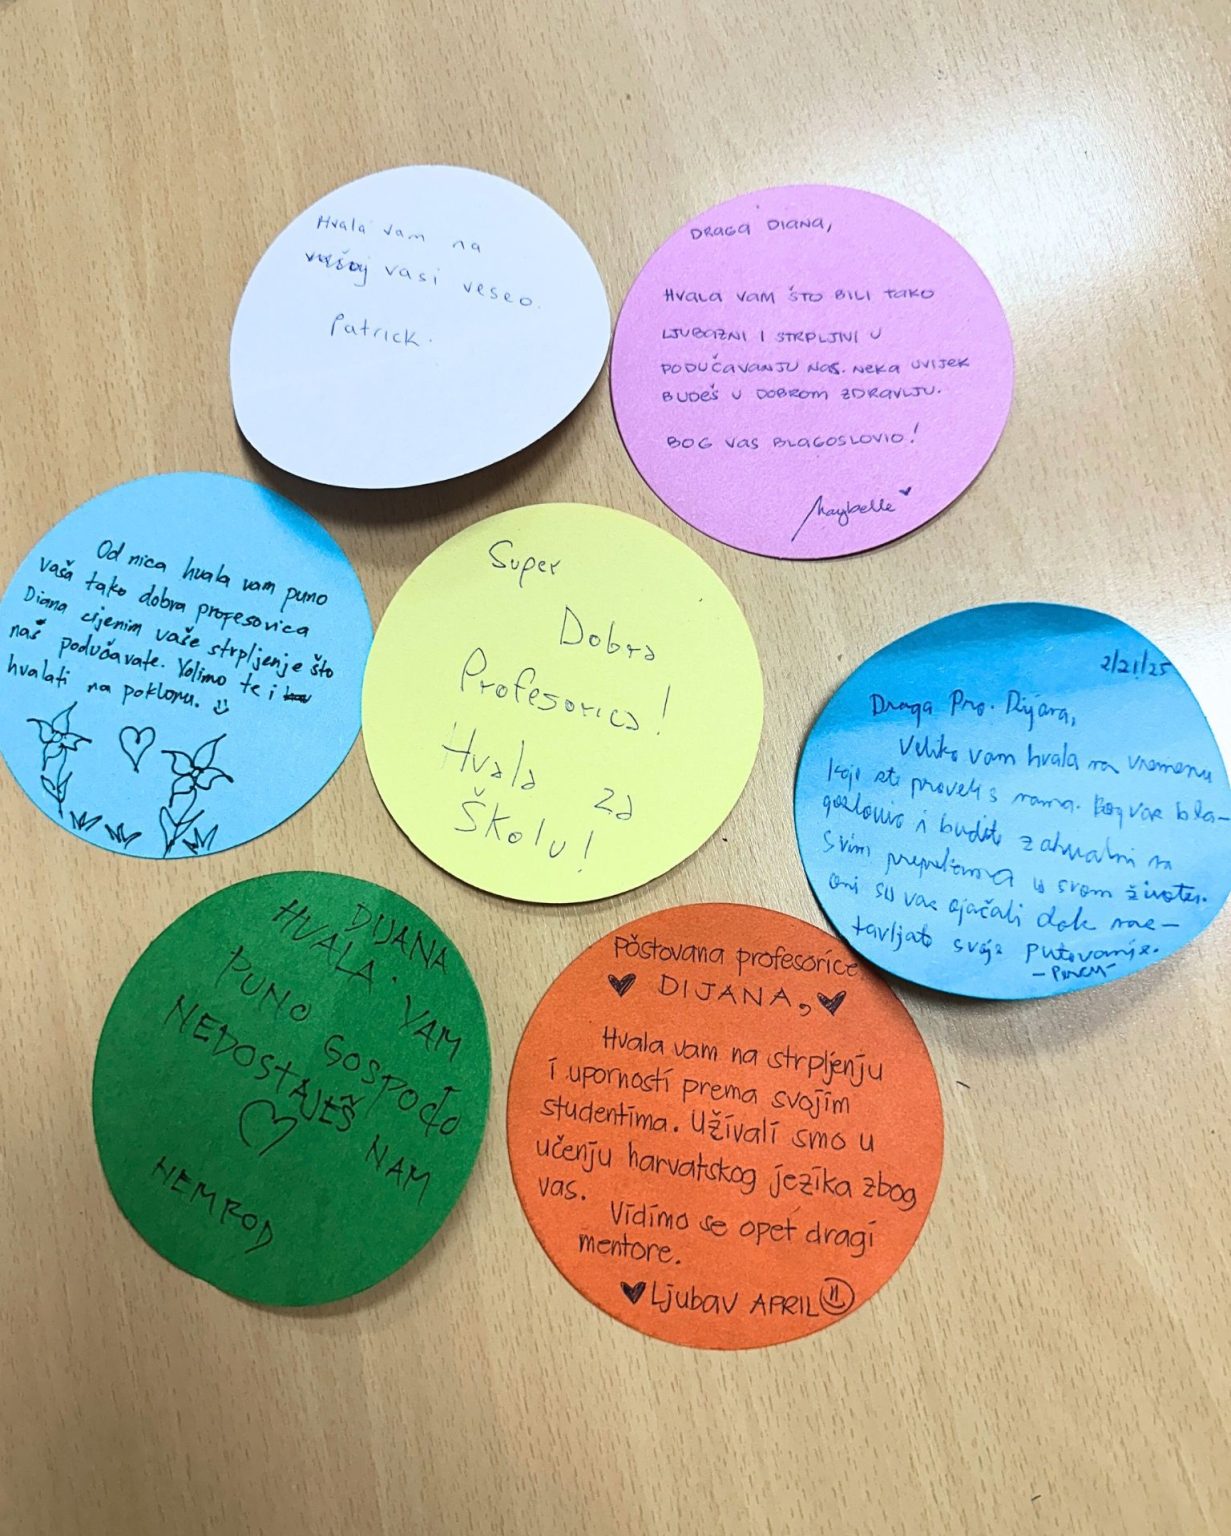 Hvala vam na
vasi veseo.
Patrick.
DRAGA DIANA,
HVALA VAM ŠTO BILI TAKO
LJUBAZNI I STRPLJIVI U
PODUČAVANJU NAS. NEKA UVIJEK
BUDEŠ U DOBROM ZDRAVLJU.
BOG VAS BLAGOSLOVIO!
Maybelle
Od nica hvala vam puno
vaša tako dobra profesorica
Diana cijenim vaše strpljenje što
naš podučavate. Volimo te i
hvalati na poklonu.
Super
Dobra
Profesorica!
Hvala za
Školu!
2/21/25
Draga Pro. Dijana,
Veliko vam hvala na vremenu
koje ste proveli s nama. Bog vas bla-
goslovio i budite zahvalni na
svim preprekama u svom životu.
oni su vas ojačali dok nas-
tavljate svoje putovanje.
DIJANA
HVALA. VAM
PUNO GOSPOĐO
NEDOSTAJEŠ NAM
NEMROD
Pōštovana profesorice
DIJANA,
Hvala vam na strpljenju
i upornosti prema svojim
studentima. Uživali smo u
učenju harvatskog jezika zbog
vas.
Vidimo se opet dragi
mentore.
Ljubav APRIL